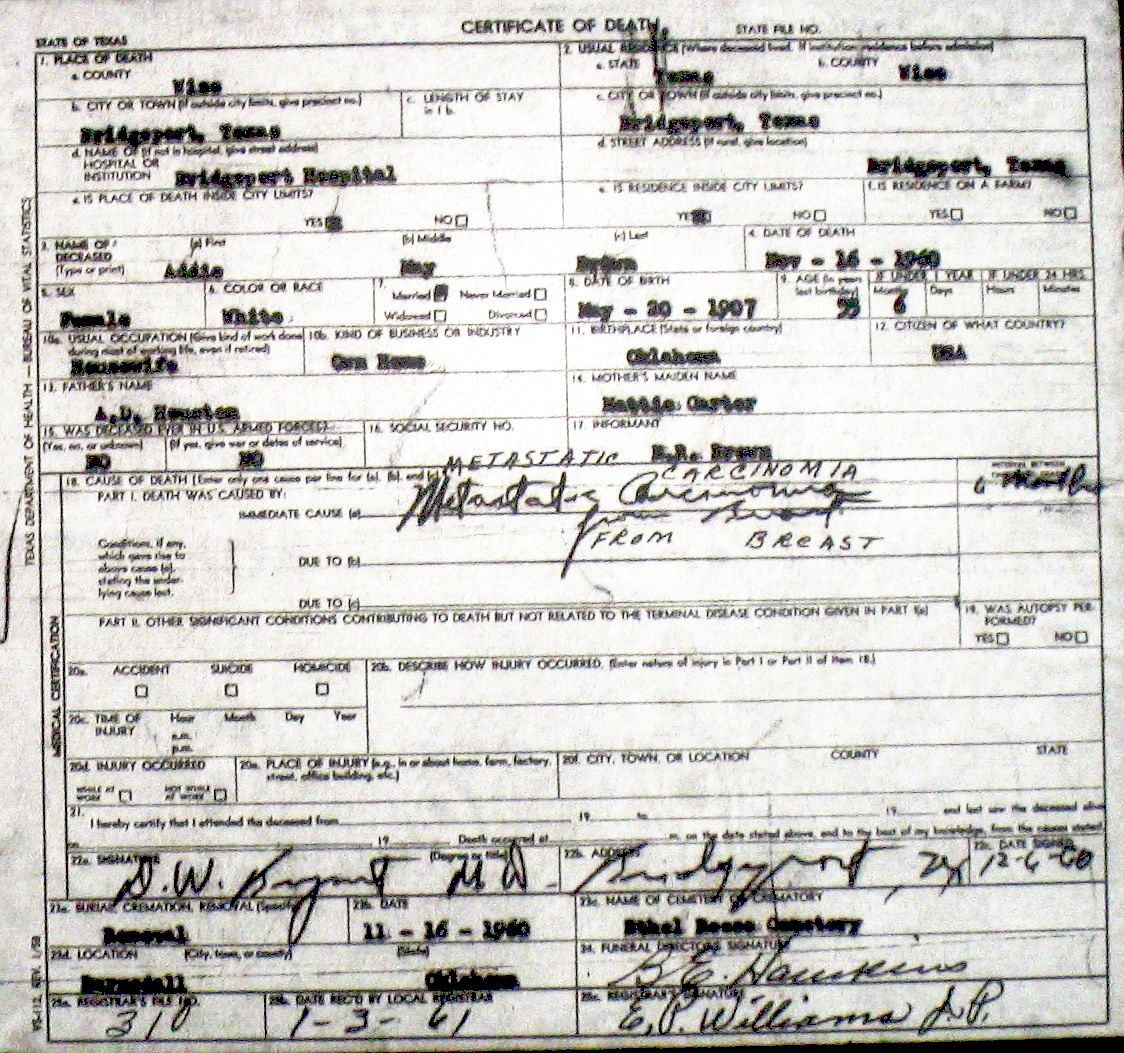 CERTIFICATE OF DEATH STATE FILE NO.
STATE OF TEXAS
1. PLACE OF DEATH
a. COUNTY
Wise
2. USUAL RESIDENCE (Where deceased lived. If institution: residence before admission)
a. STATE
Texas
b. COUNTY
Wise
b. CITY OR TOWN (If outside city limits, give precinct no.)
Bridgeport, Texas
c. LENGTH OF STAY in 1 b.
c. CITY OR TOWN (If outside city limits, give precinct no.)
Bridgeport, Texas
d. NAME OF (If not in hospital, give street address)
HOSPITAL OR
INSTITUTION Bridgeport Hospital
d. STREET ADDRESS (If rural, give location)
Bridgeport, Texas
e. IS PLACE OF DEATH INSIDE CITY LIMITS?
YES NO
e. IS RESIDENCE INSIDE CITY LIMITS?
YES NO
f. IS RESIDENCE ON A FARM?
YES NO
3. NAME OF DECEASED (Type or print)
(a) First (b) Middle (c) Last
Addie May
4. DATE OF DEATH
Nov - 16 - 1960
5. SEX
Female
6. COLOR OR RACE
White
7.
Married Never Married
Widowed Divorced
8. DATE OF BIRTH
May - 20 - 1907
9. AGE (In years last birthday)
53
IF UNDER 1 YEAR IF UNDER 24 HRS.
Months Days Hours Minutes
6
10a. USUAL OCCUPATION (Give kind of work done during most of working life, even if retired)
Housewife
10b. KIND OF BUSINESS OR INDUSTRY
Own Home
11. BIRTHPLACE (State or foreign country)
Oklahoma
12. CITIZEN OF WHAT COUNTRY?
USA
13. FATHER'S NAME
A.D. Houston
14. MOTHER'S MAIDEN NAME
Mattie Carter
15. WAS DECEASED EVER IN U.S. ARMED FORCES?
(Yes, no, or unknown) (If yes, give war or dates of service)
NO NO
16. SOCIAL SECURITY NO.
17. INFORMANT
METASTATIC CARCINOMIA
18. CAUSE OF DEATH [Enter only one cause per line for (a), (b), and (c)]
PART I. DEATH WAS CAUSED BY:
IMMEDIATE CAUSE (a) Metastatic Carcinoma
from Breast
FROM BREAST
INTERVAL BETWEEN
6 Months
Conditions, if any,
which gave rise to
above cause (a),
stating the under-
lying cause last.
DUE TO (b)
DUE TO (c)
PART II. OTHER SIGNIFICANT CONDITIONS CONTRIBUTING TO DEATH BUT NOT RELATED TO THE TERMINAL DISEASE CONDITION GIVEN IN PART I(a)
19. WAS AUTOPSY PER-
FORMED?
YES NO
20a. ACCIDENT SUICIDE HOMICIDE
20b. DESCRIBE HOW INJURY OCCURRED. (Enter nature of injury in Part I or Part II of item 18.)
20c. TIME OF INJURY
Hour Month Day Year
a.m.
p.m.
20d. INJURY OCCURRED
WHILE AT WORK NOT WHILE AT WORK
20e. PLACE OF INJURY (e.g., in or about home, farm, factory, street, office building, etc.)
20f. CITY, TOWN, OR LOCATION COUNTY STATE
21.
I hereby certify that I attended the deceased from 19 to 19 and last saw the deceased alive
on 19 Death occurred at m. on the date stated above, and to the best of my knowledge, from the causes stated.
22a. SIGNATURE (Degree or title)
D.W. Bryant M D.
22b. ADDRESS
Bridgeport, Tex
22c. DATE SIGNED
12-6-60
23a. BURIAL, CREMATION, REMOVAL (Specify)
Removal
23b. DATE
11 - 16 - 1960
23c. NAME OF CEMETERY OR CREMATORY
Ethel Reece Cemetery
23d. LOCATION (City, town, or county) (State)
Barnsdall Oklahoma
24. FUNERAL DIRECTOR'S SIGNATURE
B.E. Hawkins
25a. REGISTRAR'S FILE NO.
310
25b. DATE REC'D BY LOCAL REGISTRAR
1-3-61
25c. REGISTRAR'S SIGNATURE
E.P. Williams J.P.
TEXAS DEPARTMENT OF HEALTH — BUREAU OF VITAL STATISTICS
MEDICAL CERTIFICATION
VS-112 REV. 1/58